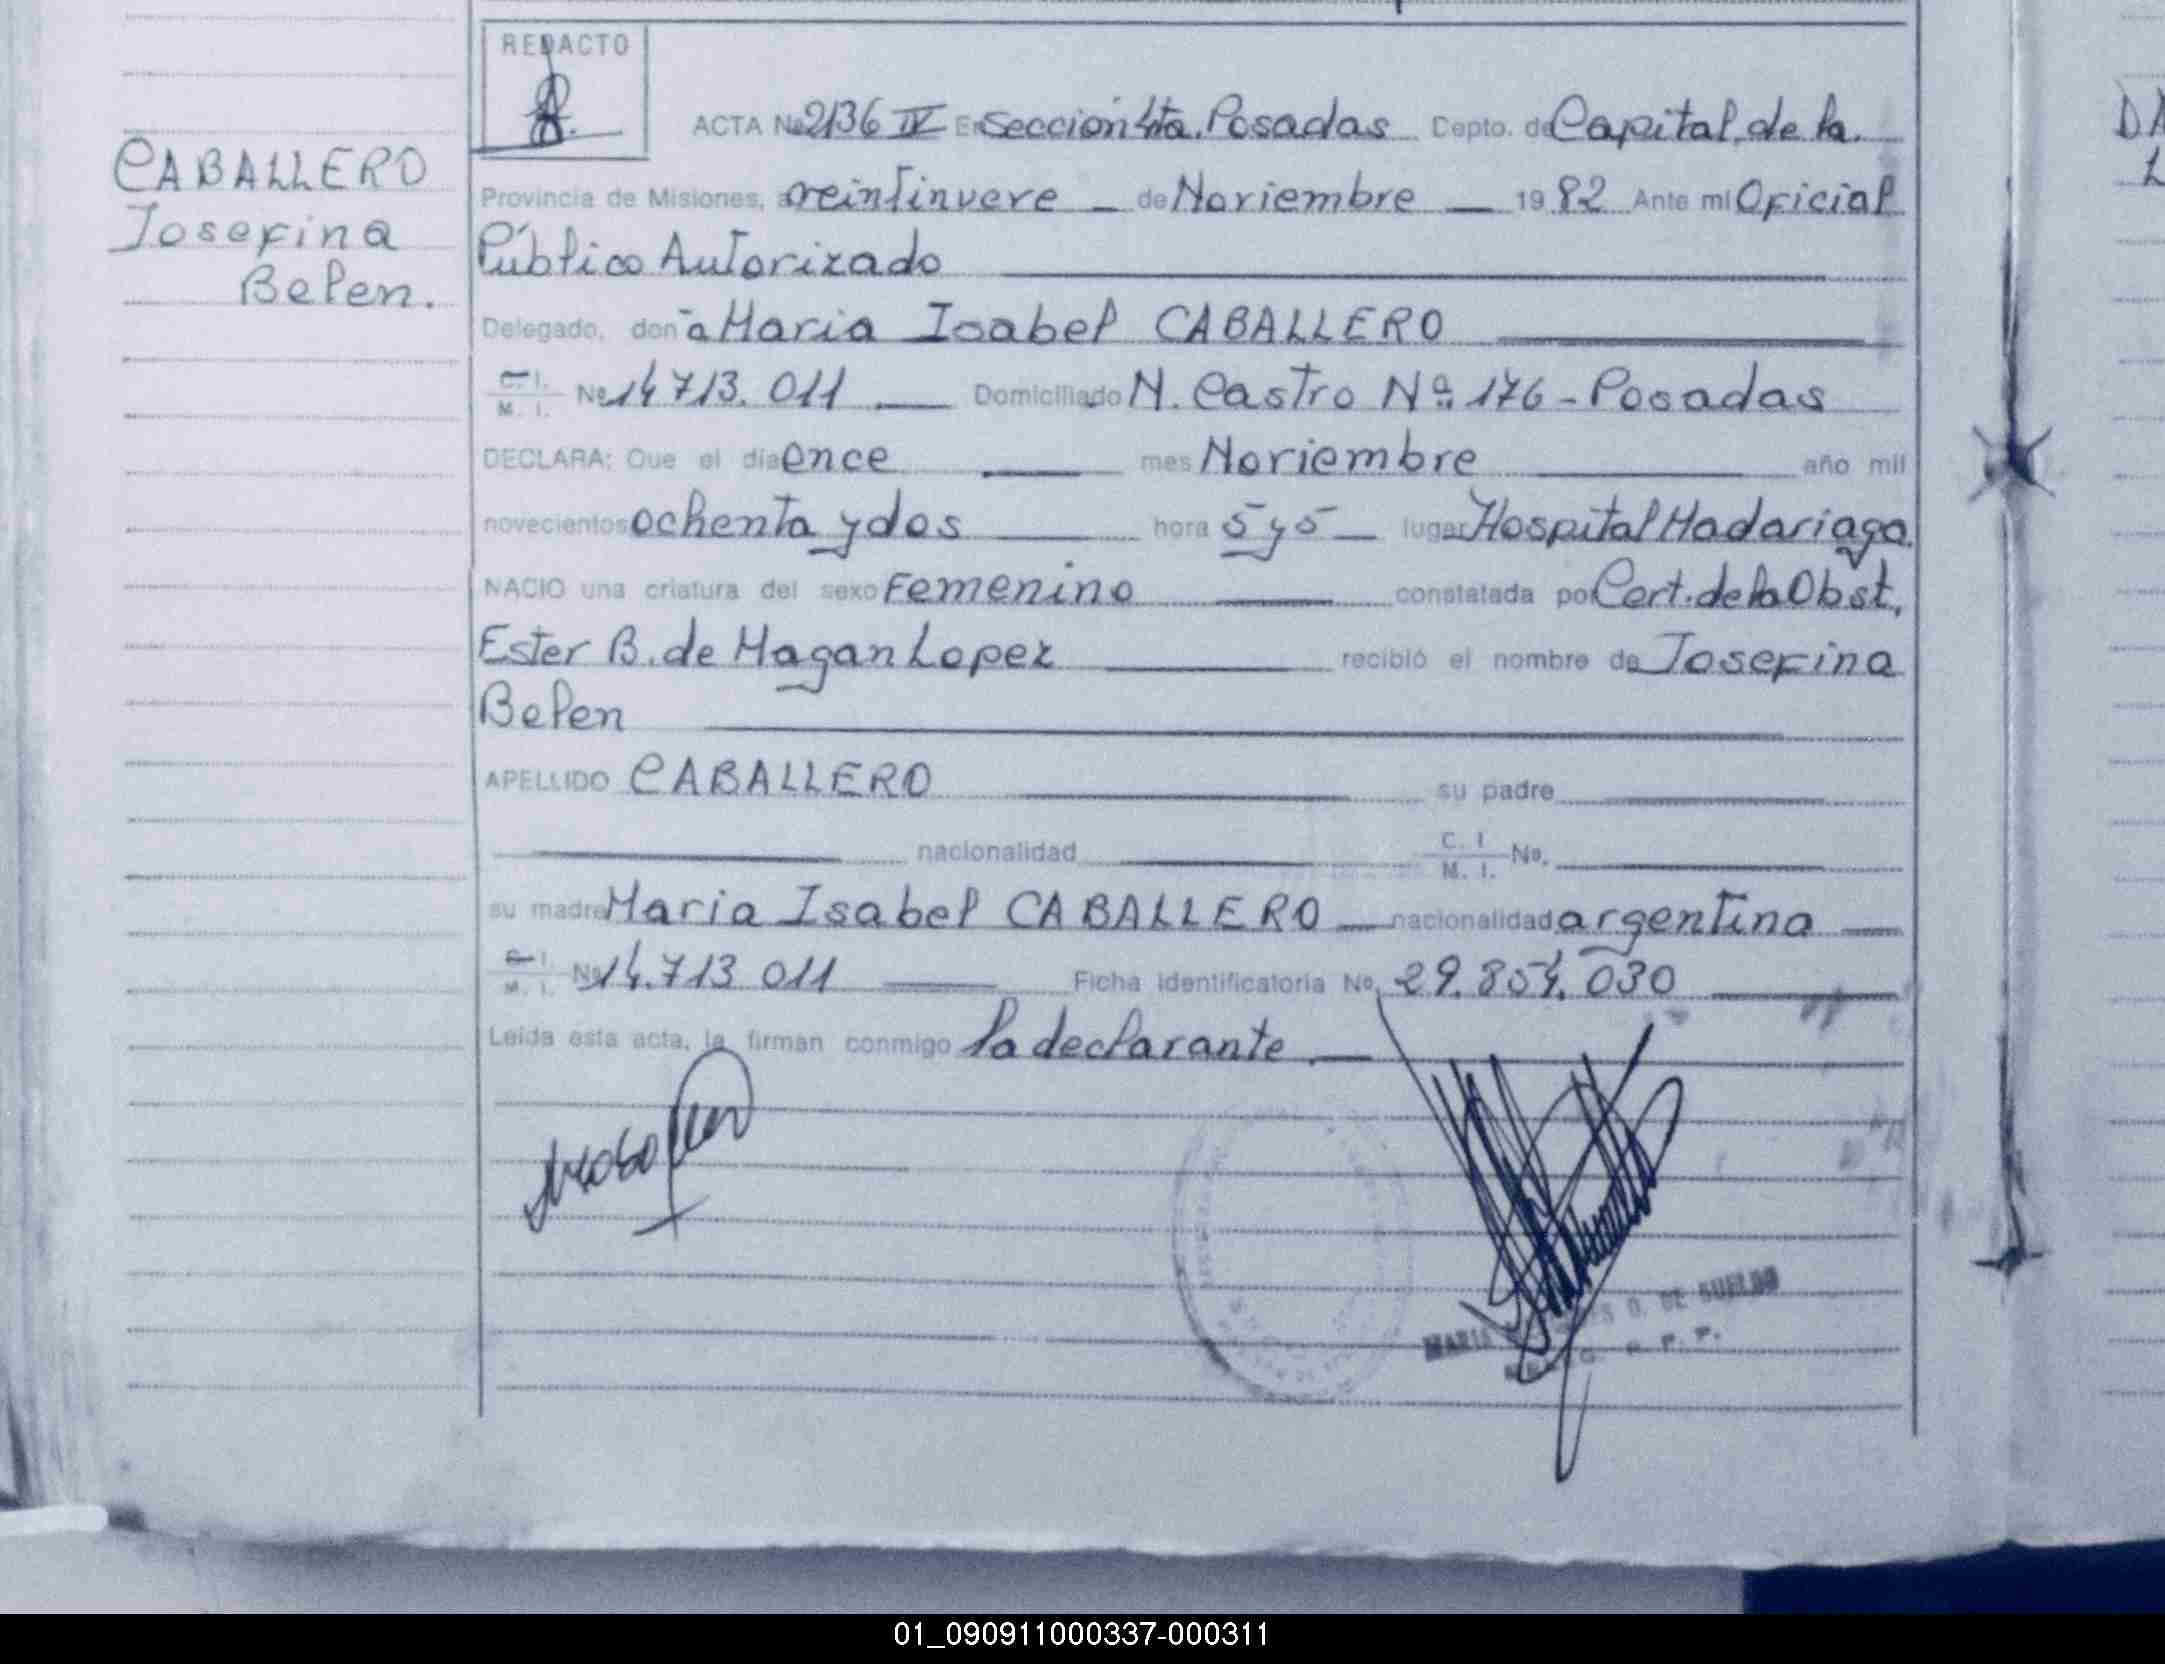 REDACTO
ACTA No 2136 IV En Sección 4ta. Posadas Depto. de Capital, de la
CABALLERO
Josefina
Belen.
Provincia de Misiones, a veintinueve de Noviembre 1982 Ante mi Oficial
Público Autorizado
Delegado, don ̃a Maria Isabel CABALLERO
C. I.
M. I. No 14 713. 011 Domiciliado N. Castro Nº 176 - Posadas
DECLARA: Que el día once mes Noviembre año mil
novecientos ochenta y dos hora 5 y 5 lugar Hospital Madariaga.
NACIO una criatura del sexo Femenino constatada por Cert. de la Obst.
Ester B. de Magan Lopez recibió el nombre de Josefina
Belen
APELLIDO CABALLERO su padre
nacionalidad C. I.
M. I. No.
su madre Maria Isabel CABALLERO nacionalidad argentina
C. I.
M. I. No 14.713 011 Ficha Identificatoria No. 29.854.030
Leída esta acta, la firman conmigo la declarante.
MARIA D. DE SUELDO
01_090911000337-000311